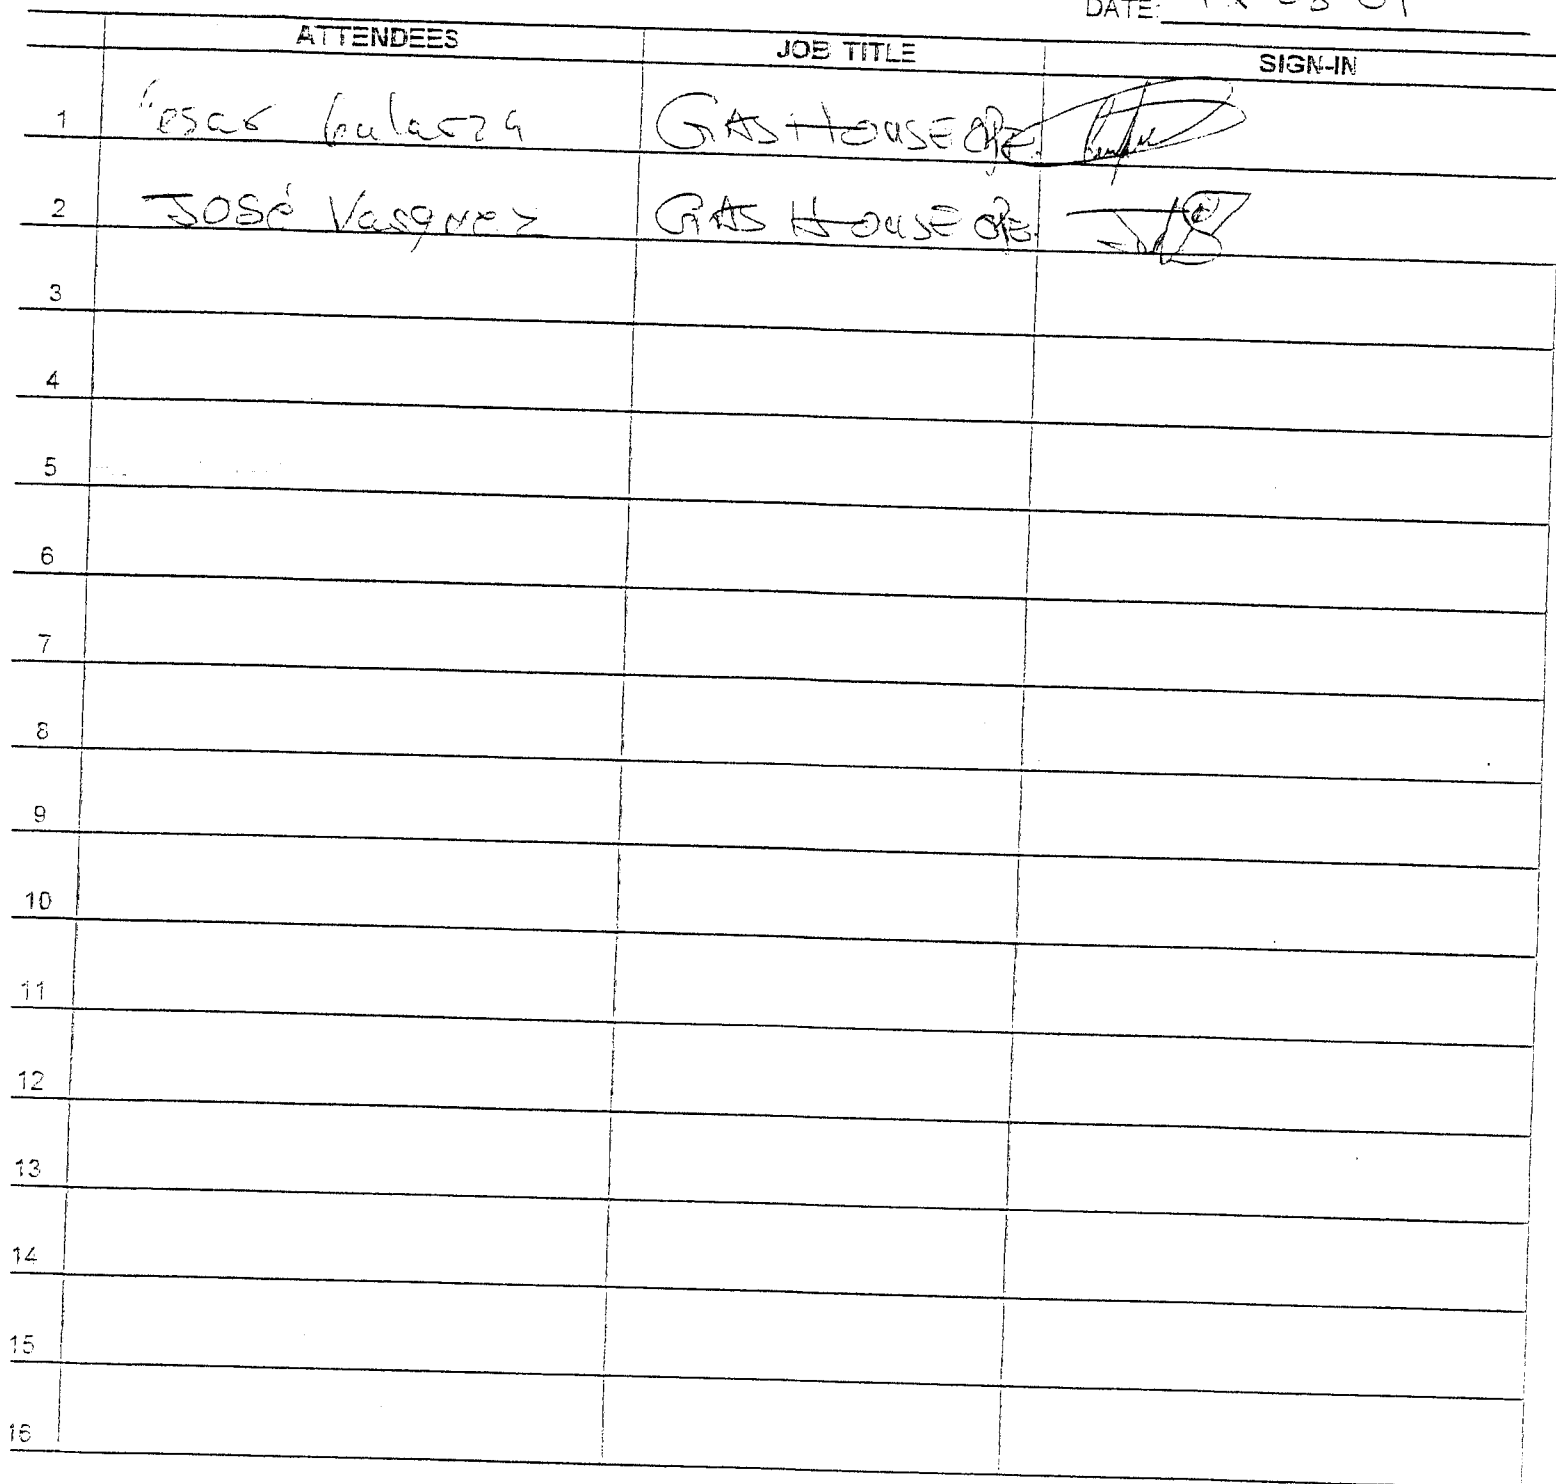 DATE:
ATTENDEES JOB TITLE SIGN-IN
1 GAS HOUSE OPE.
2 José Vasquez GAS HOUSE OPE.
3
4
5
6
7
8
9
10
11
12
13
14
15
16